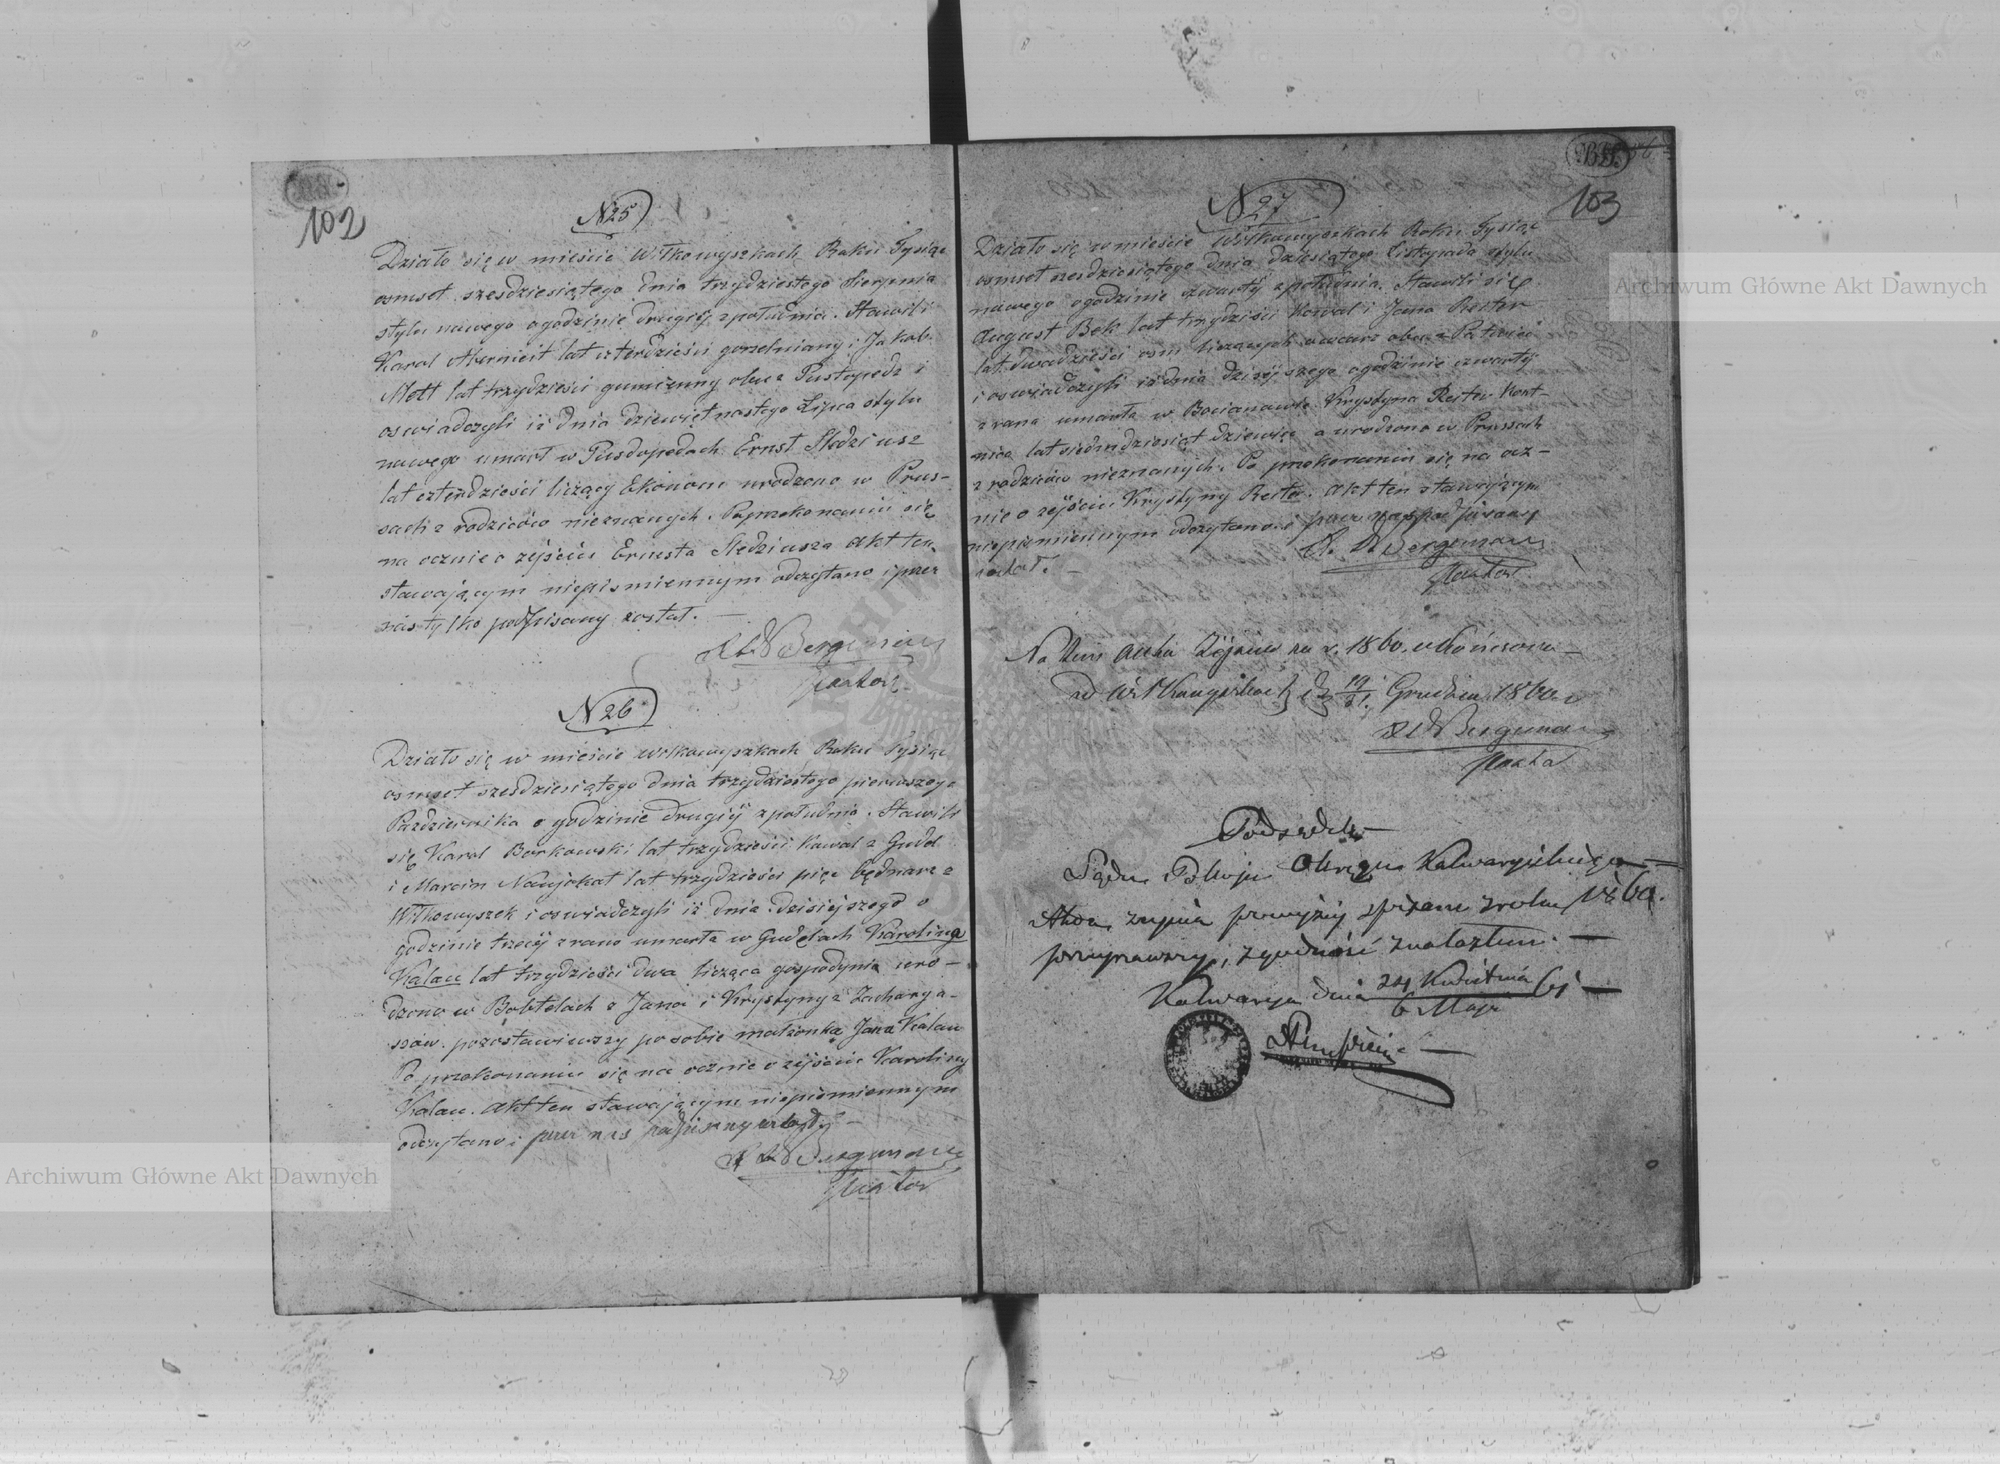 102
N 25
Działo się w mieście Wiłkowyszkach Roku Tysiąc
osmset szesdziesiątego dnia trzydziestego Sierpnia
stylu nowego ogodzinie drugiéj zpołudnia. Stawili
Karol lat czterdzieści gorzelniany i Jakob
Mett lat trzydzieści gumienny obaz Pustopedz i
oswiadczyli iż dnia dziewiętnastego Lipca stylu
nowego umarł w Pusdopedach Ernst
lat czterdzieści liczący Ekonom urodzono w Prus-
sach z rodziców nieznanych. Poprzekonaniu się
na ocznie o zejściu Ernesta Akt ten
stawającym niepismiennym odczytano i przez
nas tylko podpisany został. —
Bergmann
Pastor
N 26
Działo się w mieście Wilkowyszkach Roku Tysiąc
osmset szesdziesiątego dnia trzydziestego pierwszego
Pazdziernika o godzinie drugiéj zpołudnia. Stawili
się Karol Borkowski lat trzydzieści Kowal z Gudel
i Marcin Naujokat lat trzydzieści pięc bednarz z
Wilkowyszek i oswiadczyli iż dnia dzisiejszego o
godzinie trzeciéj zrana umarła w Gudelach Karolina
Kalau lat trzydzieści dwa licząca gospodynia uro-
dzono w Bobtelach z Jana i Krystyny z Zacharya-
szów. pozostawiwszy posobie małżonka Jana Kalau
Po przekonaniu się na ocznie o zejściu Karoliny
Kalau. Akt ten stawającym niepismiennym
odczytano i przez nas
Bergmann
Pastor
103
N 27
Działo się w mieście Wilkowyszkach Roku Tysiąc
osmset szesdziesiątego dnia dziesiątego Listopada stylu
nowego ogodzinie czwartéj zpołudnia. Stawili się
August Bek lat trzydzieści Kowal i Jana Rester
lat dwadzieścia osm liczących owczarz oba z
i oswiadczyli iż dnia dzisiéjszego ogodzinie czwartéj
z rana umarła w Bocianowie Krystyna Rester Kort-
nica lat siedmdziesiąt dziewięc a urodzona w Prussach
z rodziców nieznanych. Po przekonaniu się na ocz-
nie o zejściu Krystyny Rester. Akt ten stawającym
niepismiennym odczytano i przez nas podpisany
został. —
Bergmann
Pastor
Na tem Akta Zejścia za r. 1860. ukończono
w Wilkowyszkach d. 19/31 Grudnia 1860 r
Bergmann
Pastor
Podsędek
Sądu Pokoju Okręgu Kalwaryjskiego
Akta zejścia powyżéj spisane z roku 1860.
przejrzawszy, zgodność znalazłem. —
Kalwarya dnia 24 Kwietnia / 6 Maja 61 —
Archiwum Główne Akt Dawnych
Archiwum Główne Akt Dawnych